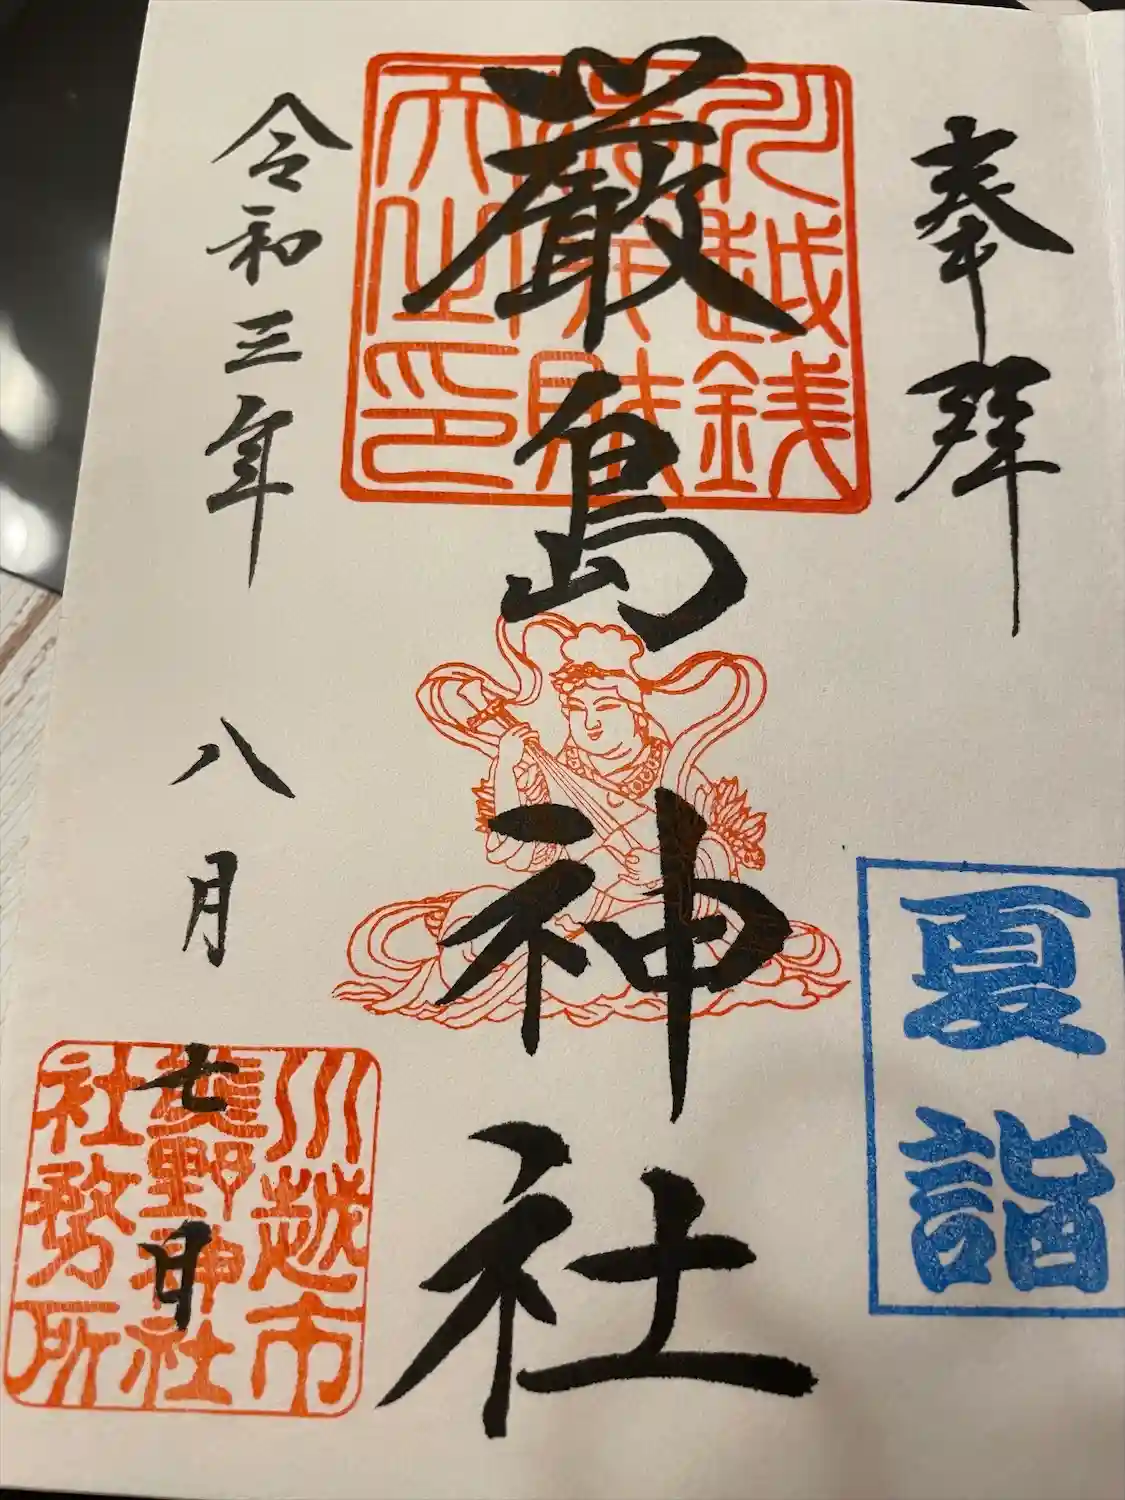 奉拝
夏詣
厳島神社
川越銭
財
天之印
令和三年八月七日
川越市
熊野神社
社務所